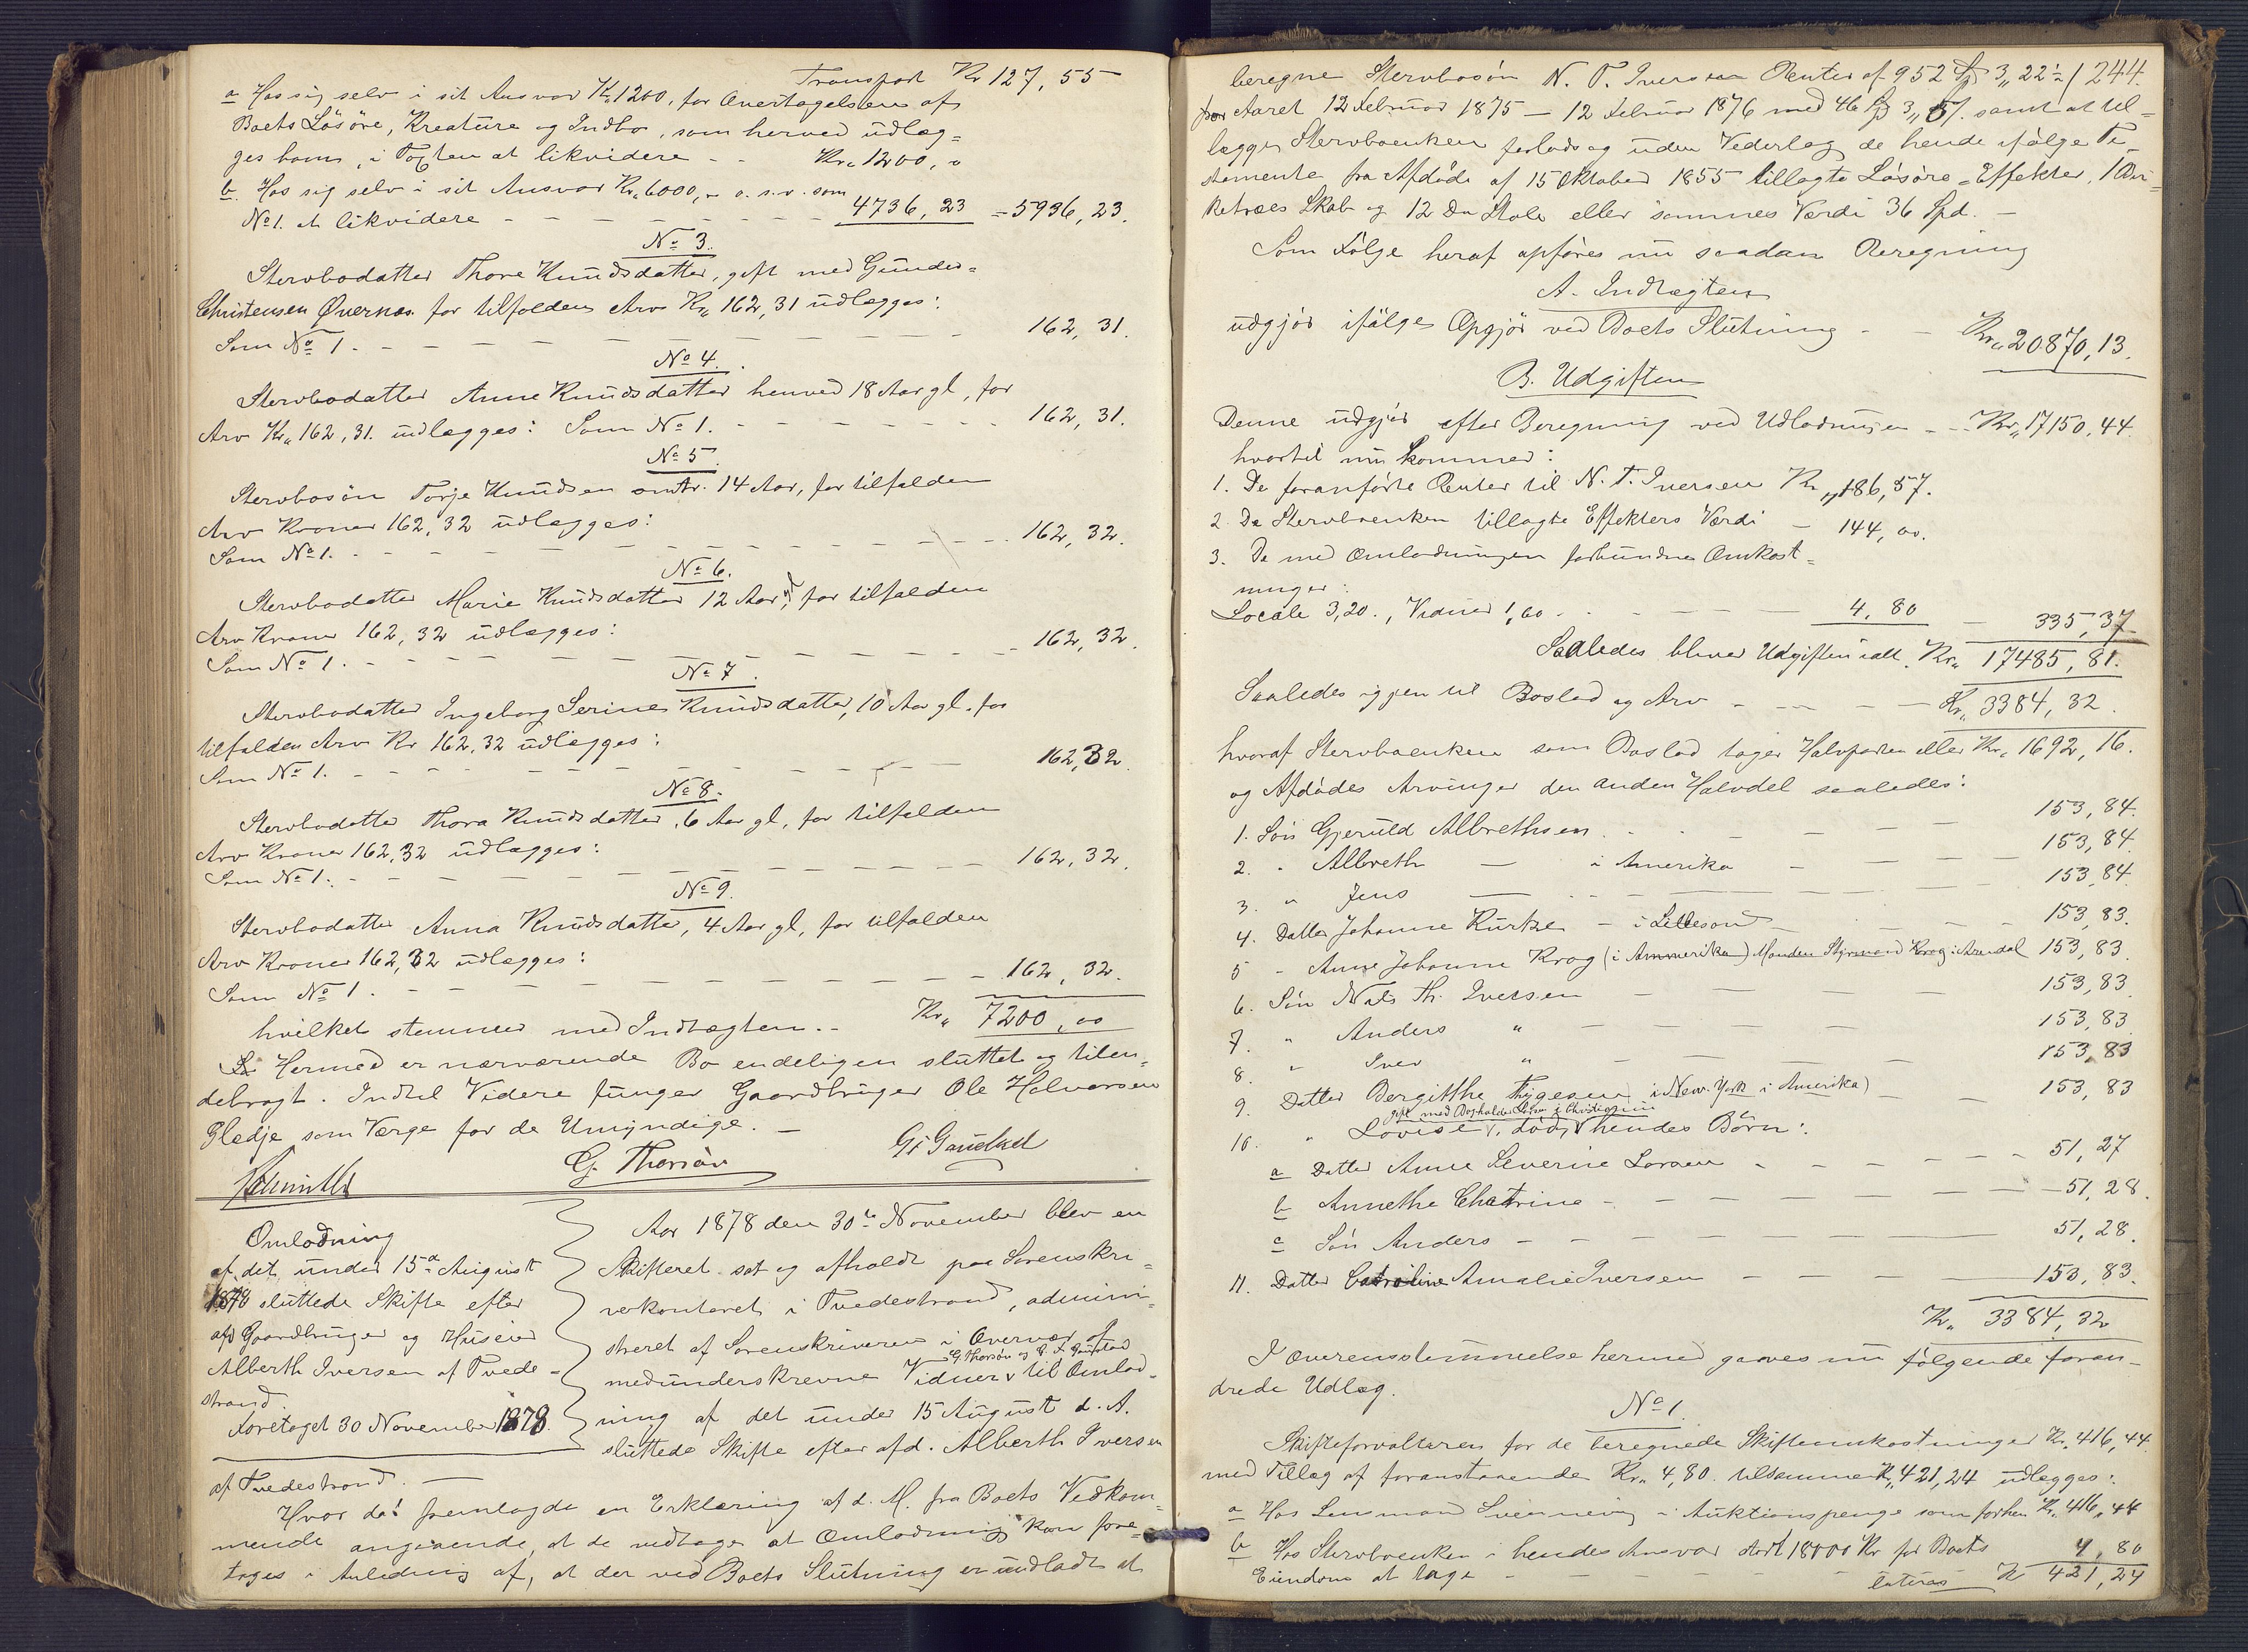 Transport Kr 127, 55
a Hos sig selv i sit Ansvar Kr. 1200, for Overtagelsen af
Boets Lösöre, Kreature og Indbo, som herved udlæg=
ges ham, at likvidere - - Kr. 1200, "
b. Hos sig selv i sit Ansvar Kr. 6000, " o. s. v. som
No 1. at likvidere - - - - - - - - 4736, 23 = 5936, 23.
No 3.
Stervbodatter Thore Knudsdatter, gift med Gunder=
Christensen Øvernæs for tilfalden Arv Kr. 162, 31 udlægges:
Som No 1. - - - - - - - - - - 162, 31.
No 4.
Stervbodatter Anne Knudsdatter henved 18 Aar gl, for
Arv Kr. 162, 31. udlægges: Som No 1. - - - - - - - 162, 31.
No 5.
Stervbosön Torje Knudsen omtr. 14 Aar, for tilfalden
Arv Kroner 162, 32 udlægges:
Som No 1. - - - - - - - - - - - 162, 32.
No 6.
Stervbodatter Marie Knudsdatter 12 Aar gl, for tilfalden
Arv Kroner 162, 32 udlægges:
Som No 1. - - - - - - - - - - - 162, 32.
No 7.
Stervbodatter Ingeborg Serine Knudsdatter, 10 Aar gl. for
tilfalden Arv Kr 162, 32 udlægges:
Som No 1. - - - - - - - - - - 162, 32.
No 8.
Stervbodatter Thora Knudsdatter, 6 Aar gl, for tilfalden
Arv Kroner 162, 32 udlægges:
Som No 1. - - - - - - - - - - 162, 32.
No 9.
Stervbodatter Anna Knudsdatter, 4 Aar gl, for tilfalden
Arv Kroner 162, 32 udlægges:
Som No 1. - - - - - - - - - - 162, 32.
hvilket stemmer med Indtægten. - Kr. 7200, 00
Hermed er nærværende Bo endeligen sluttet og tilen=
debragt. Indtil Videre funger Gaardbruger Ole Halvorsen
Glædje som Værge for de Umyndige. -
G. Thorsön
Omlodning
af det under 15de August
1878 sluttede Skifte efter
afd Gaardbruger og Huseier
Alberth Iversen af Tvede-
strand.
Foretaget 30 November 1878.
Aar 1878 den 30te November blev en
Skifteret sat og afholdt paa Sorenskri=
verkontoret i Tvedestrand, admini=
streret af Sorenskriveren i Overvær af
medunderskrevne Vidner G. Thorsön og til Omlod=
ning af det under 15 August d. A.
sluttede Skifte efter afd. Alberth Iversen
af Tvedestrand. -
Hvor da fremlagde en Erklæring af d. M. fra Boets Vedkom=
mende angaaende, at de vedtager at Omlodning kan fore=
tages i Anledning af, at der ved Boets Slutning er undladt at
beregne Stervbosön N. T. Iversen Renter af 952 Sp 3 " 22 ½ / 244.
for Aaret 12 Februar 1875 - 12 Februar 1876 med 46 Sp 3 " 57. samt at til=
lægge Stervboenken forlods og uden Vederlag de hende ifølge Te=
stamente fra Afdøde af 15 Oktober 1855 tillagte Løsøre-Effekter, 1 Bir=
ketræes Skab og 12 Do Stole eller sammes Værdi 36 Spd. -
Som Følge heraf opføres nu saadan Beregning
A. Indtægten
udgjör ifölge Opgjör ved Boets Slutning - - Kr. 20870, 13.
B. Udgiften
Denne udgjör efter Beregning ved Udlodningen - - Kr. 17150, 44.
hvortil nu kommer:
1. De foranførte Renter til N. T. Iversen Kr. 186, 57.
2. De Stervboenken tillagte Effekters Værdi - 144, 00.
3. De med Omlodningen forbundne Omkost=
ninger:
Locale 3, 20., Vidner 1, 60 - - - - - 4, 80 - 335, 37
Saaledes bliver Udgiften ialt. Kr. 17485, 81.
Saaledes igjen til Boslod og Arv - - - - Kr. 3384, 32.
hvoraf Stervboenken som Boslod tager Halvparten eller Kr. 1692, 16.
og Afdødes Arvinger den anden Halvdel saaledes:
1. Sön Gjeruld Albrethsen. - - - - - 153, 84.
2. " Albreth - i Amerika - - - 153, 84.
3. " Jens - - - - - 153, 84.
4. Datter Johanne Kurtze - i Lillesand - - - 153, 83.
5 " Anne Johanne Krog (i Ammerika) Manden Styrmand Krog i Arendal 153, 83.
6. Sön Niels Th. Iversen - - - - 153, 83.
7. " Anders " - - - - - 153, 83.
8. " Iver " - - - - 153, 83
9. Datter Bergitthe Thygesen (i New-York i Amerika) - - 153, 83
gift med Bogholder Larsen i Christiania
10. " Lovise, död, hendes Börn:
a Datter Anne Severine Larsen - - - - - 51, 27
b Annethe Chatrine - - - - - - 51, 28.
c Sön Anders - - - - - - 51, 28.
11. Datter Amalie Iversen - - - - 153, 83.
Kr. 3384, 32
I Overensstemmelse hermed gaves nu følgende foran=
drede Udlæg.
No 1.
Skifteforvalteren for de beregnede Skifteomkostninger Kr. 416, 44.
med Tillæg af foranstaaende Kr. 4, 80. tilsammen Kr. 421, 24 udlægges:
a Hos Lensmand i Auktionspenge som forhen Kr. 416, 44
b Hos Stervboenken i hendes Ansvar stort 18000 Kr for Boets
Eiendom at tage - - - - - - 4, 80
lateris Kr 421, 24